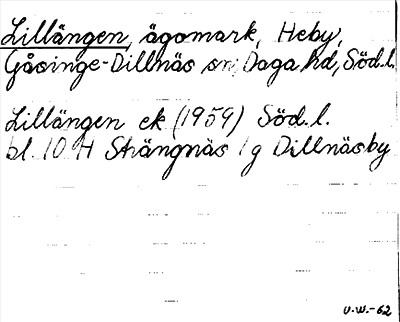 Lillängen, ägomark, Heby,
Gåsinge-Dillnäs sn, Daga hd, Söd.l.
Lillängen ek (1959) Söd. l.
bl. 10 H Strängnäs 1g Dillnäsby
U.W.-62